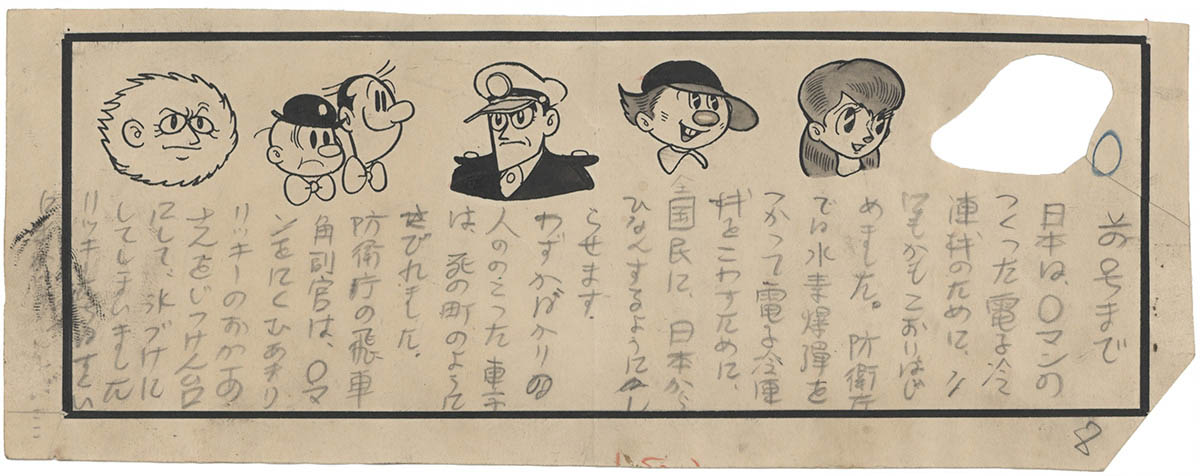 前号まで
日本は、○マンの
つくった電子冷
のために、
にもかもこおりはじ
めました。防衛庁
では水素爆弾を
つかって電子冷
をこわすために、
全国民に、日本から
ひなんするようにし
らせます。
わずかばかりの
人ののこった東京
は 死の町のように
さびれました。
防衛庁の飛車
角副官は、○マ
ンをにくむあまり
リッキーのおかあ
さんをじっけん台
にして、氷づけに
してしまいました
リッキー すくい
に
8